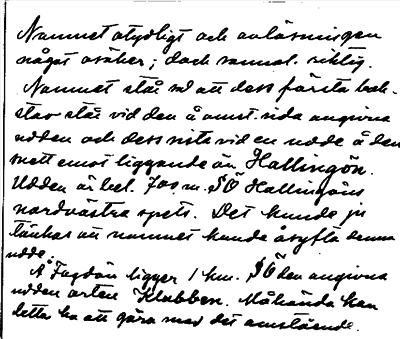 Namnet otydligt och avläsningen
något osäker; dock sannol. riktig.
Namnet står så att dess första bok-
stav står vid den å omst. sida angivna
udden och dess sista vid en udde å den
mett emot liggande ön Hallingön.
Udden är bel. 700 m. SÖ Hallingöns
nordvästra spets. Det kunde ju
tänkas att namnet kunde åsyfta denna
udde.
Å Fogdön ligger 1 km. SÖ den angivna
udden orten Klubben. Måhända kan
detta ha att göra med det omstående.